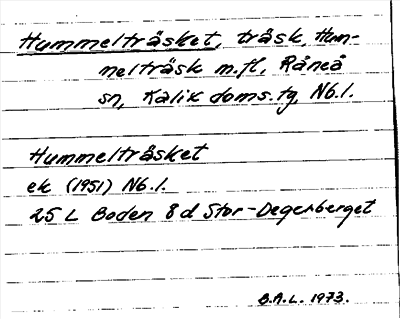 Hummelträsket, träsk, Hum-
melträsk m.fl., Råneå
sn, Kalix doms.tg, Nb.l.
Hummelträsket
ek (1951) Nb.l.
25 L Boden 8 d Stor-Degerberget
B.A.L. 1973.